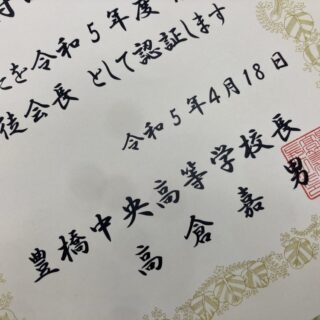 を令和5年度
徒会長 として認証します
令和5年4月18日
豊橋中央高等学校長
高倉嘉男